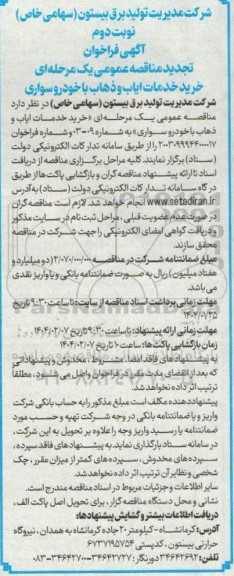 شرکت مدیریت تولید برق بیستون (سهامی خاص)
نوبت دوم
آگهی فراخوان
تجدید مناقصه عمومی یک مرحله‌ای
خرید خدمات ایاب و ذهاب با خودرو سواری
شرکت مدیریت تولید برق بیستون (سهامی خاص) در نظر دارد
مناقصه عمومی یک مرحله‌ای «خرید خدمات ایاب و
ذهاب با خودرو سواری» به شماره ۰۳-۰۰۹ و شماره فراخوان
را از طریق سامانه تدارکات الکترونیکی دولت
(ستاد) برگزار نمایند. کلیه مراحل برگزاری مناقصه از دریافت
اسناد تا ارائه پیشنهاد مناقصه گران و بازگشایی پاکت‌ها از طریق
درگاه سامانه تدارکات الکترونیکی دولت (ستاد) به آدرس
www.setadiran.ir انجام خواهد شد. لازم است مناقصه گران
در صورت عدم عضویت قبلی، مراحل ثبت نام در سایت مذکور
و دریافت گواهی امضای الکترونیکی را جهت شرکت در مناقصه
محقق سازند.
مبلغ ضمانتنامه شرکت در مناقصه: ۲/۰۷۰/۰۰۰/۰۰۰ (دو میلیارد و
هفتاد میلیون) ریال به صورت ضمانتنامه بانکی و یا واریز نقدی
می باشد.
مهلت زمانی برداشت اسناد مناقصه از سایت: تا ساعت ۹:۳۰ تاریخ
۱۴۰۴/۰۱/۲۵
مهلت زمانی ارائه پیشنهاد: تا ساعت ۹:۳۰ تاریخ ۱۴۰۴/۰۲/۰۷
زمان بازگشایی پاکت‌ها: ساعت ۱۰ تاریخ ۱۴۰۴/۰۲/۰۷
به پیشنهادهای فاقد امضا، مشروط، مخدوش و پیشنهاداتی
که بعد از انقضای مدت مقرر در فراخوان واصل می شود، مطلقا
ترتیب اثر داده نخواهد شد.
پیشنهاددهنده مکلف است مبلغ مذکور را به حساب بانکی شرکت
واریز و یا ضمانتنامه بانکی در وجه شرکت تهیه و حسب مورد
ضمانتنامه یا رسید واریز وجه را علاوه بر تحویل به این شرکت،
در سامانه ستاد بارگذاری نماید. به پیشنهادهای فاقد سپرده،
سپرده‌های مخدوش، سپرده‌های کمتر از میزان مقرر، چک
شخصی و نظایر آن ترتیب اثر داده نخواهد شد.
سایر اطلاعات و جزئیات مربوط در اسناد مناقصه مندرج است.
نشانی و محل دستگاه مناقصه گزار، برای تحویل اصل پاکت الف،
دریافت اطلاعات بیشتر و گشایش پیشنهادها:
آدرس: کرمانشاه - کیلومتر ۲۰ جاده کرمانشاه به همدان، نیروگاه
حرارتی بیستون، کدپستی ۶۷۳۷۹۵۷۵۴
۳۴۶۴۲۶۹۲ دورنگار: ۳۴۶۴۲۷۲۷-۳۴۶۴۲۷۰۰-۰۸۳